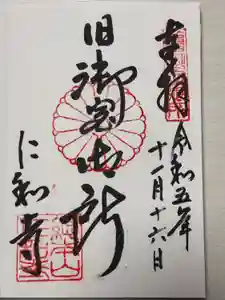 奉拝
令和五年
十一月十六日
旧御室御所
仁和寺